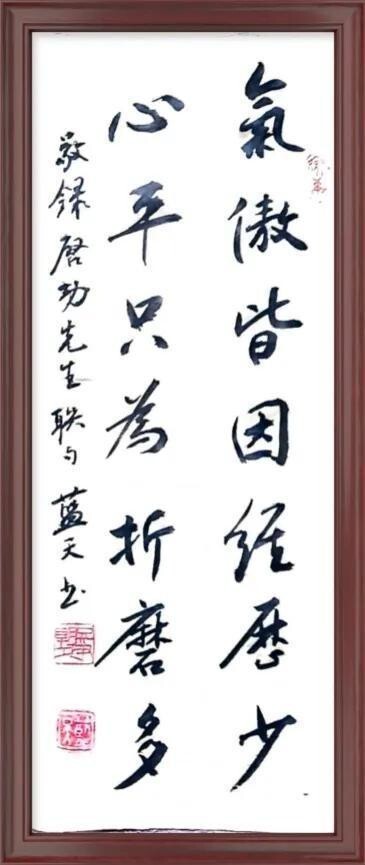 氣傲皆因經歷少
心平只為折磨多
敬錄啓功先生联句 藍天書